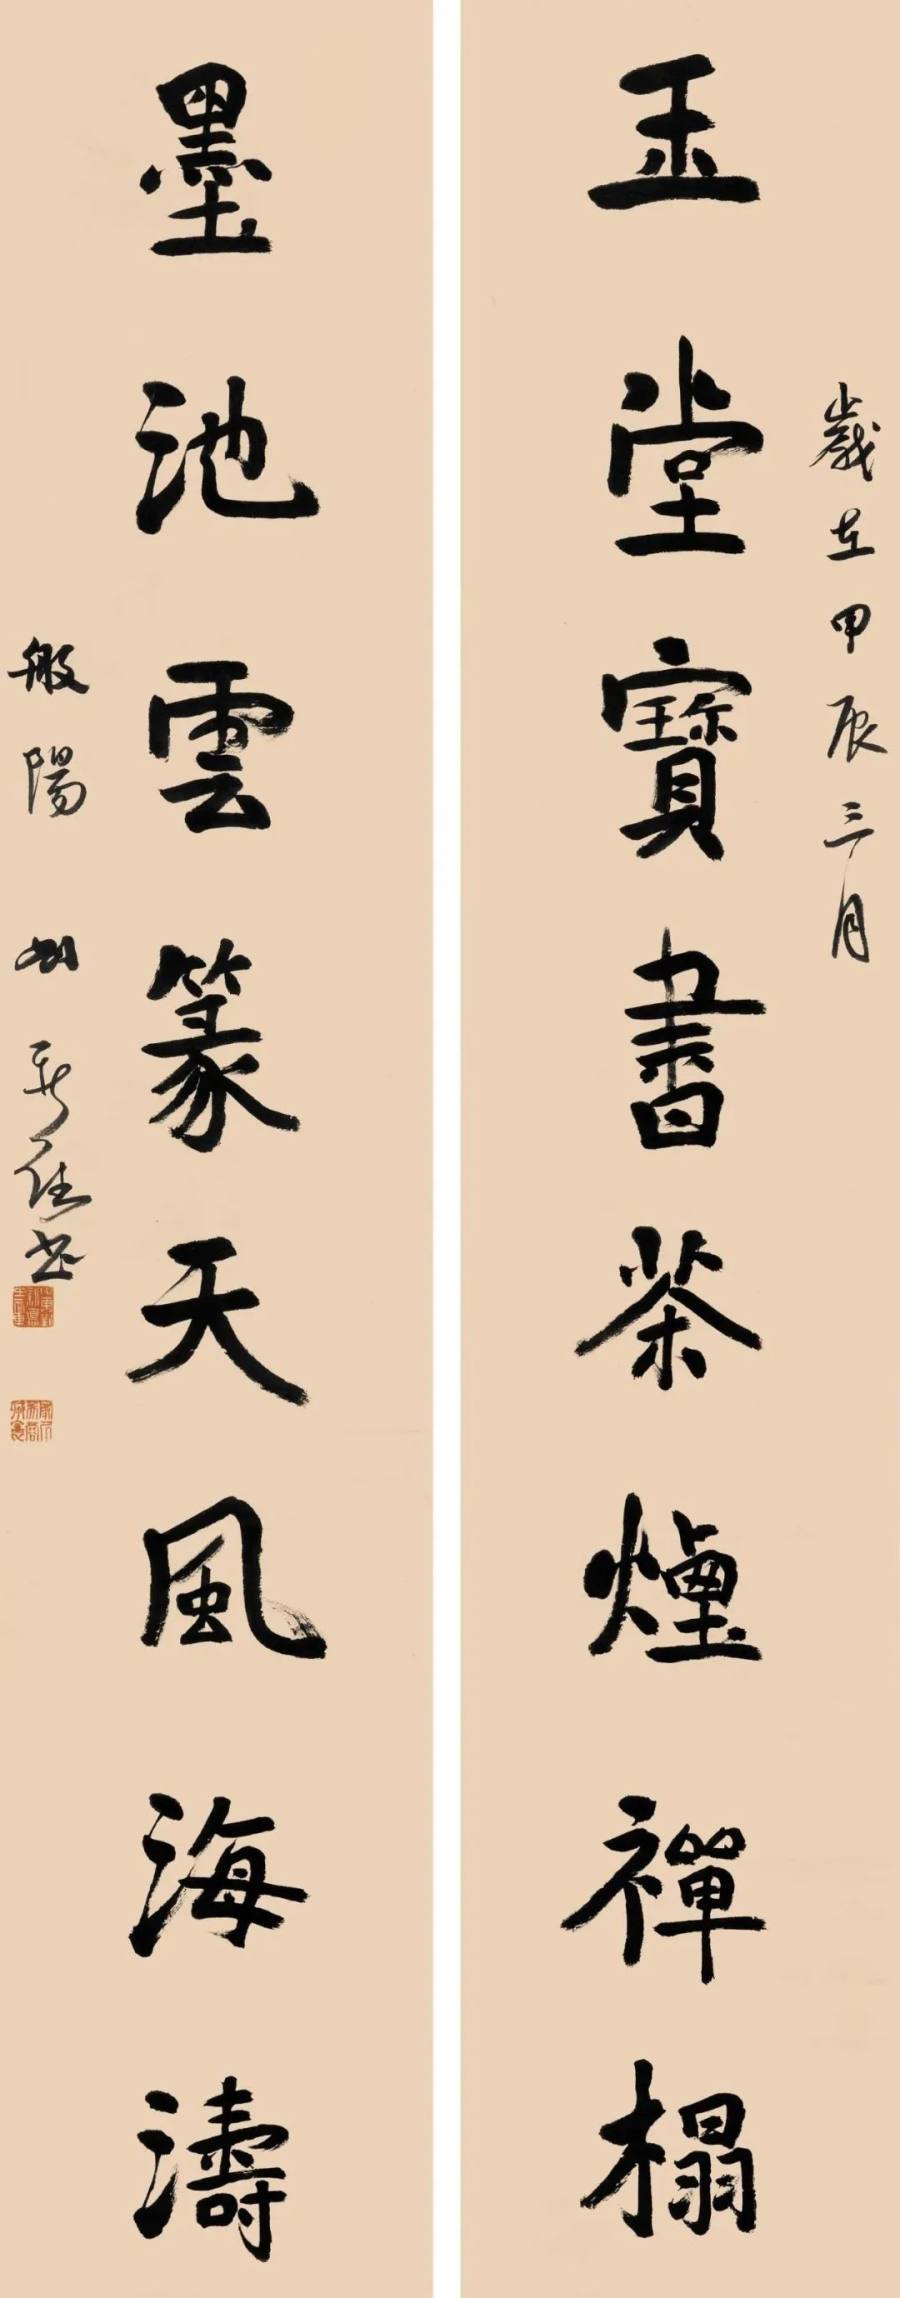 歲在甲辰三月
玉堂寶書茶煙禪榻
墨池雲篆天風海濤
般陽
書